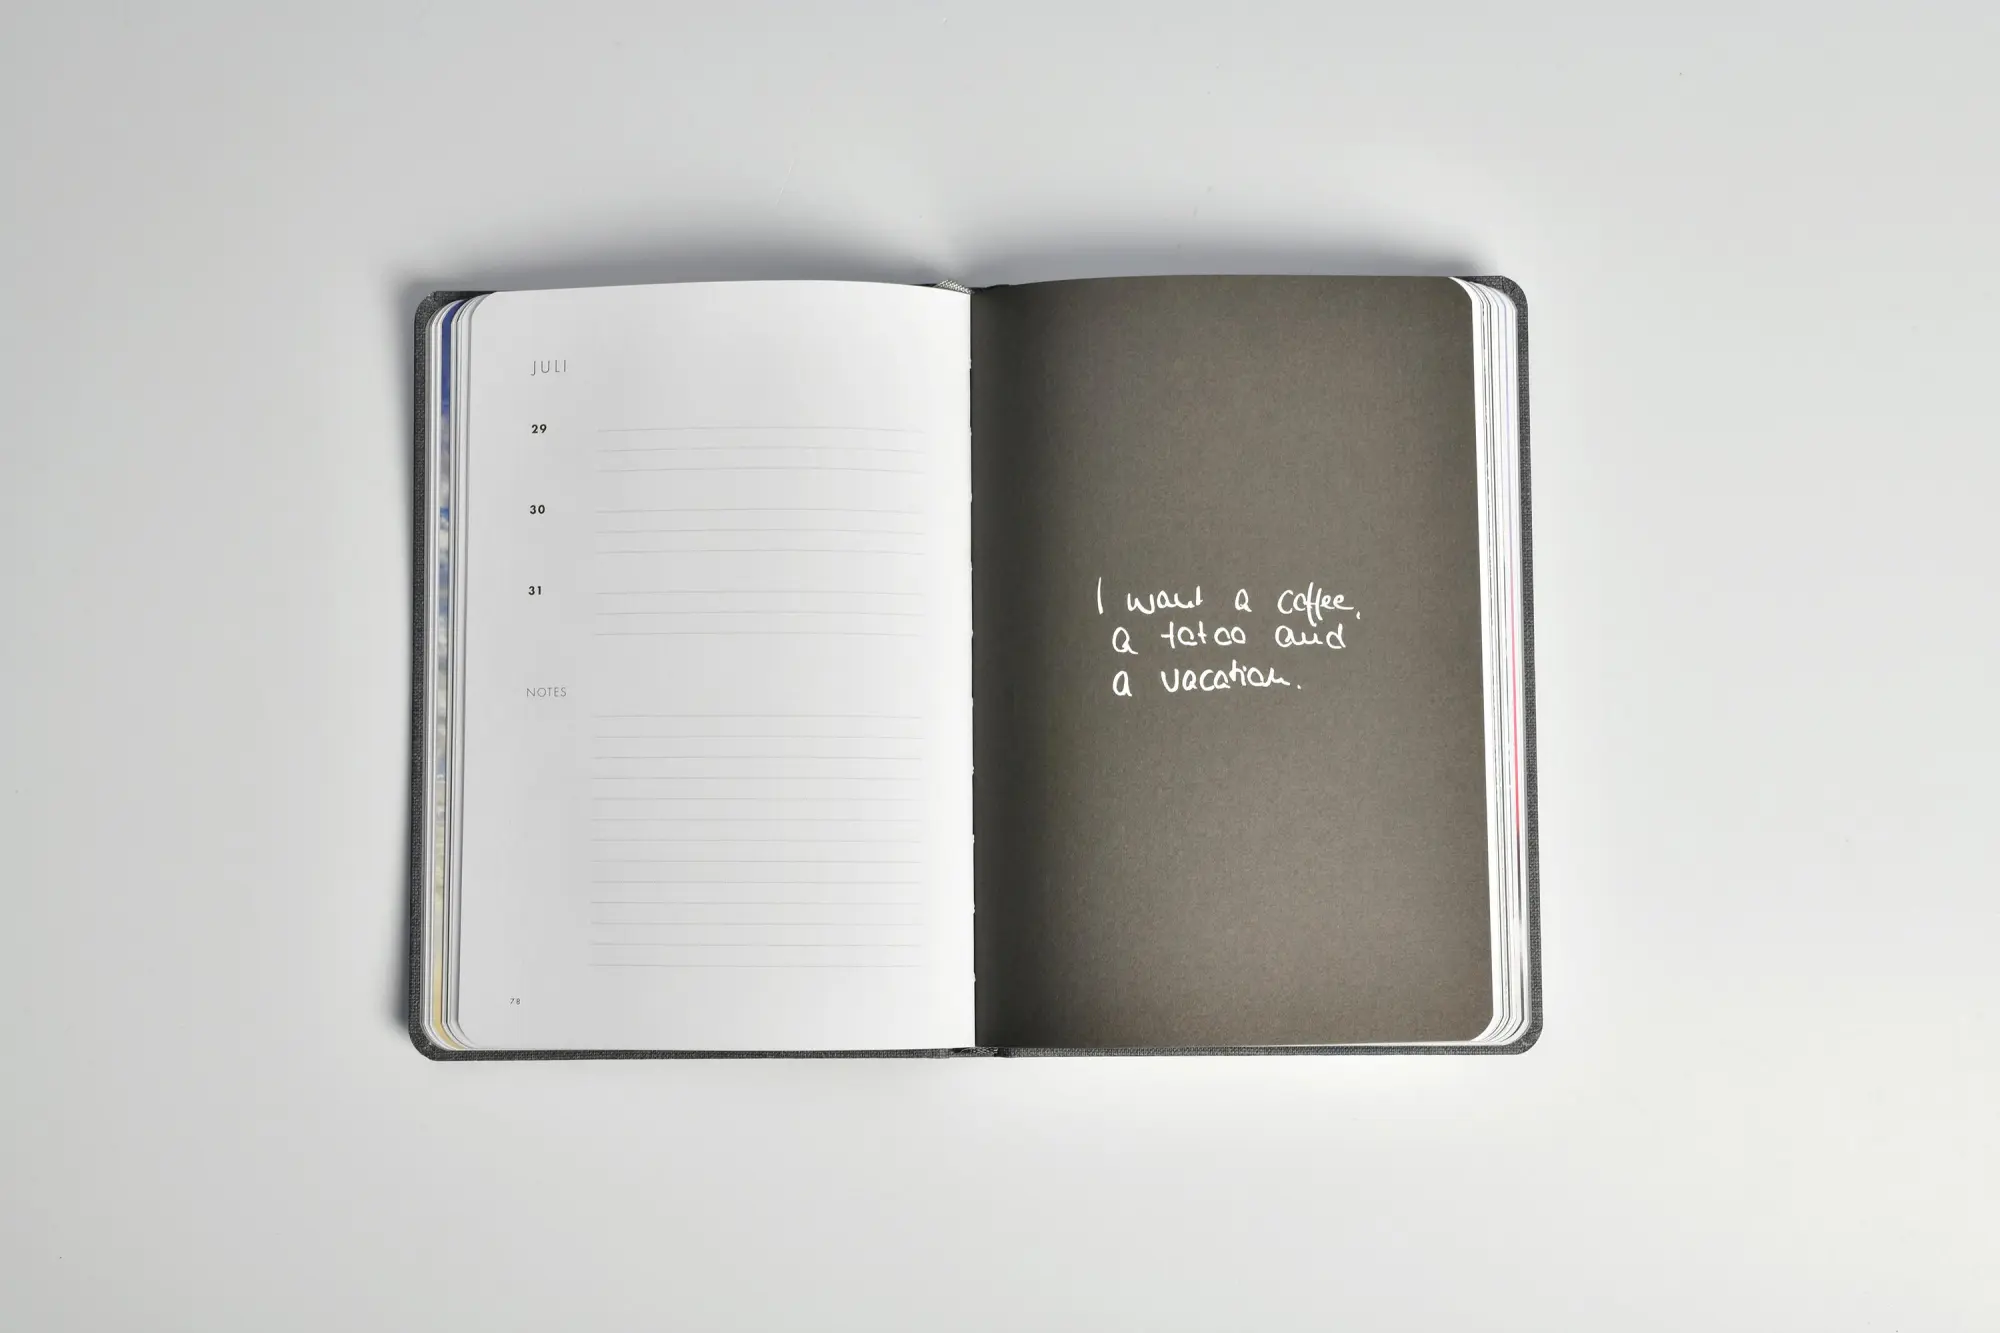 JULI
29
30
31
NOTES
78
I want a coffee,
a tatoo and
a vacation.